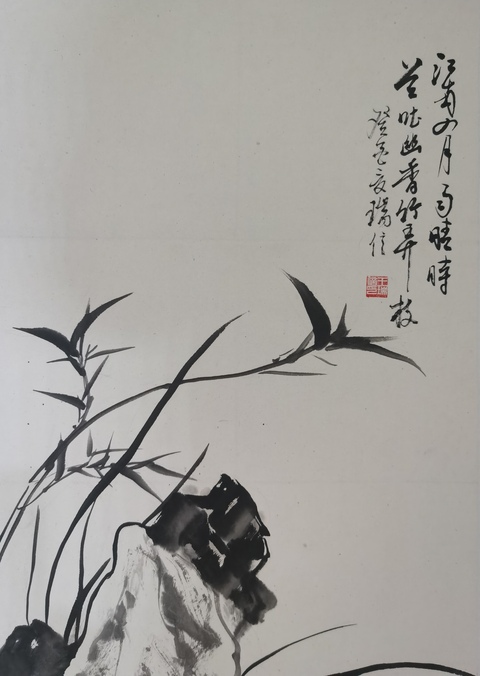 江南四月雨晴時
兰吐幽香竹弄枝
癸夏瑞信